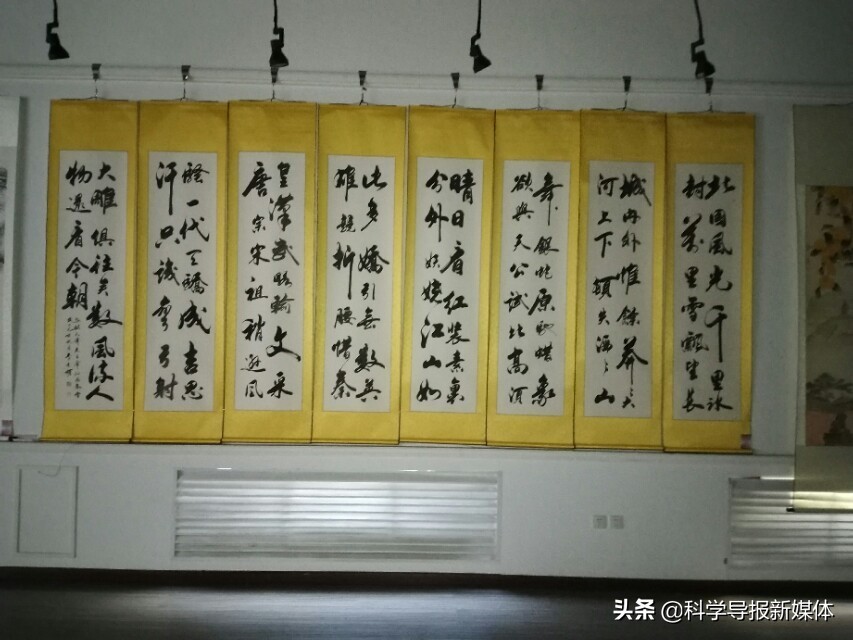 北国風光千里冰
封萬里雪飄望長
城内外惟餘莽々大
河上下頓失滔々山
舞銀蛇原馳蜡象
欲與天公試比高須
晴日看紅裝素裹
分外妖嬈江山如
此多嬌引無數英
雄競折腰惜秦
皇漢武略輸文采
唐宗宋祖稍遜風
騷一代天驕成吉思
汗只識彎弓射
大雕俱往矣數風流人
物還看今朝
头条 @科学导报新媒体